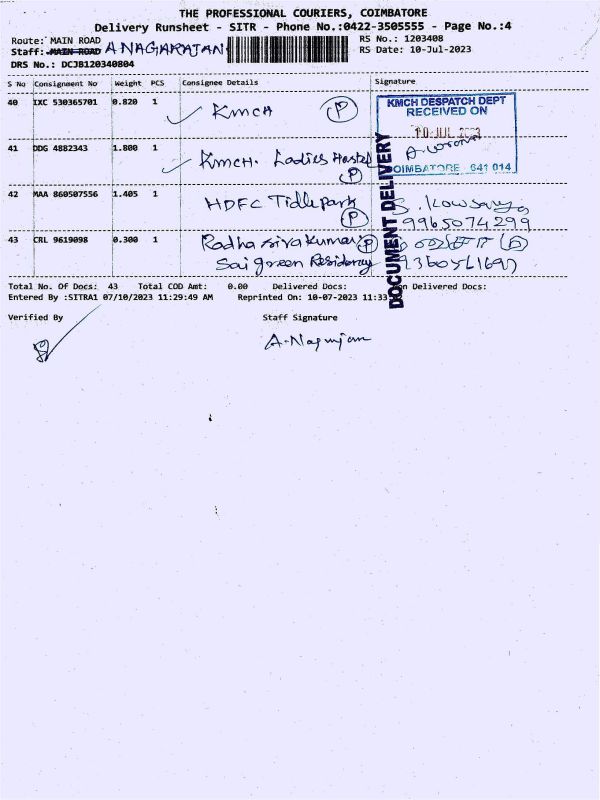 THE PROFESSIONAL COURIERS, COIMBATORE
Delivery Runsheet - SITR - Phone No.:0422-3505555 - Page No.:4
Route: MAIN ROAD
RS No.: 1203408
Staff: MAIN ROAD A NAGARAJAN
RS Date: 10-Jul-2023
DRS No.: DCJB120340804
S No Consignment No Weight PCS Consignee Details Signature
40 IXC 530365701 0.820 1 KmCH P
KMCH DESPATCH DEPT
RECEIVED ON
10 JUL 2023
COIMBATORE 641 014
41 DDG 4882343 1.800 1 KmCH. Ladies Hostel P
DOCUMENT DELIVERY
42 MAA 860507556 1.405 1 HDFC Tidle park P
9965074299
43 CRL 9619098 0.300 1 Radha siva Kumar P
Sai green Residency
Total No. Of Docs: 43 Total COD Amt: 0.00 Delivered Docs: Non Delivered Docs:
Entered By :SITRA1 07/10/2023 11:29:49 AM Reprinted On: 10-07-2023 11:33
Verified By Staff Signature
A. Nagarajan